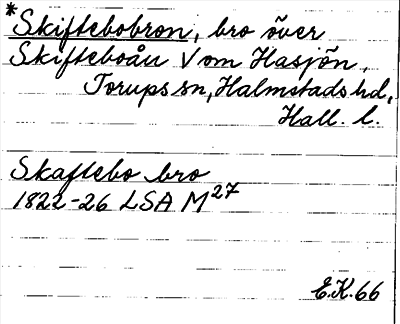 *Skiftebobron, bro över
Skifteboån V om Hasjön,
Torups sn, Halmstads hd,
Hall. l.
Skaftebo bro
1822-26 LSA M27
E.K. 66